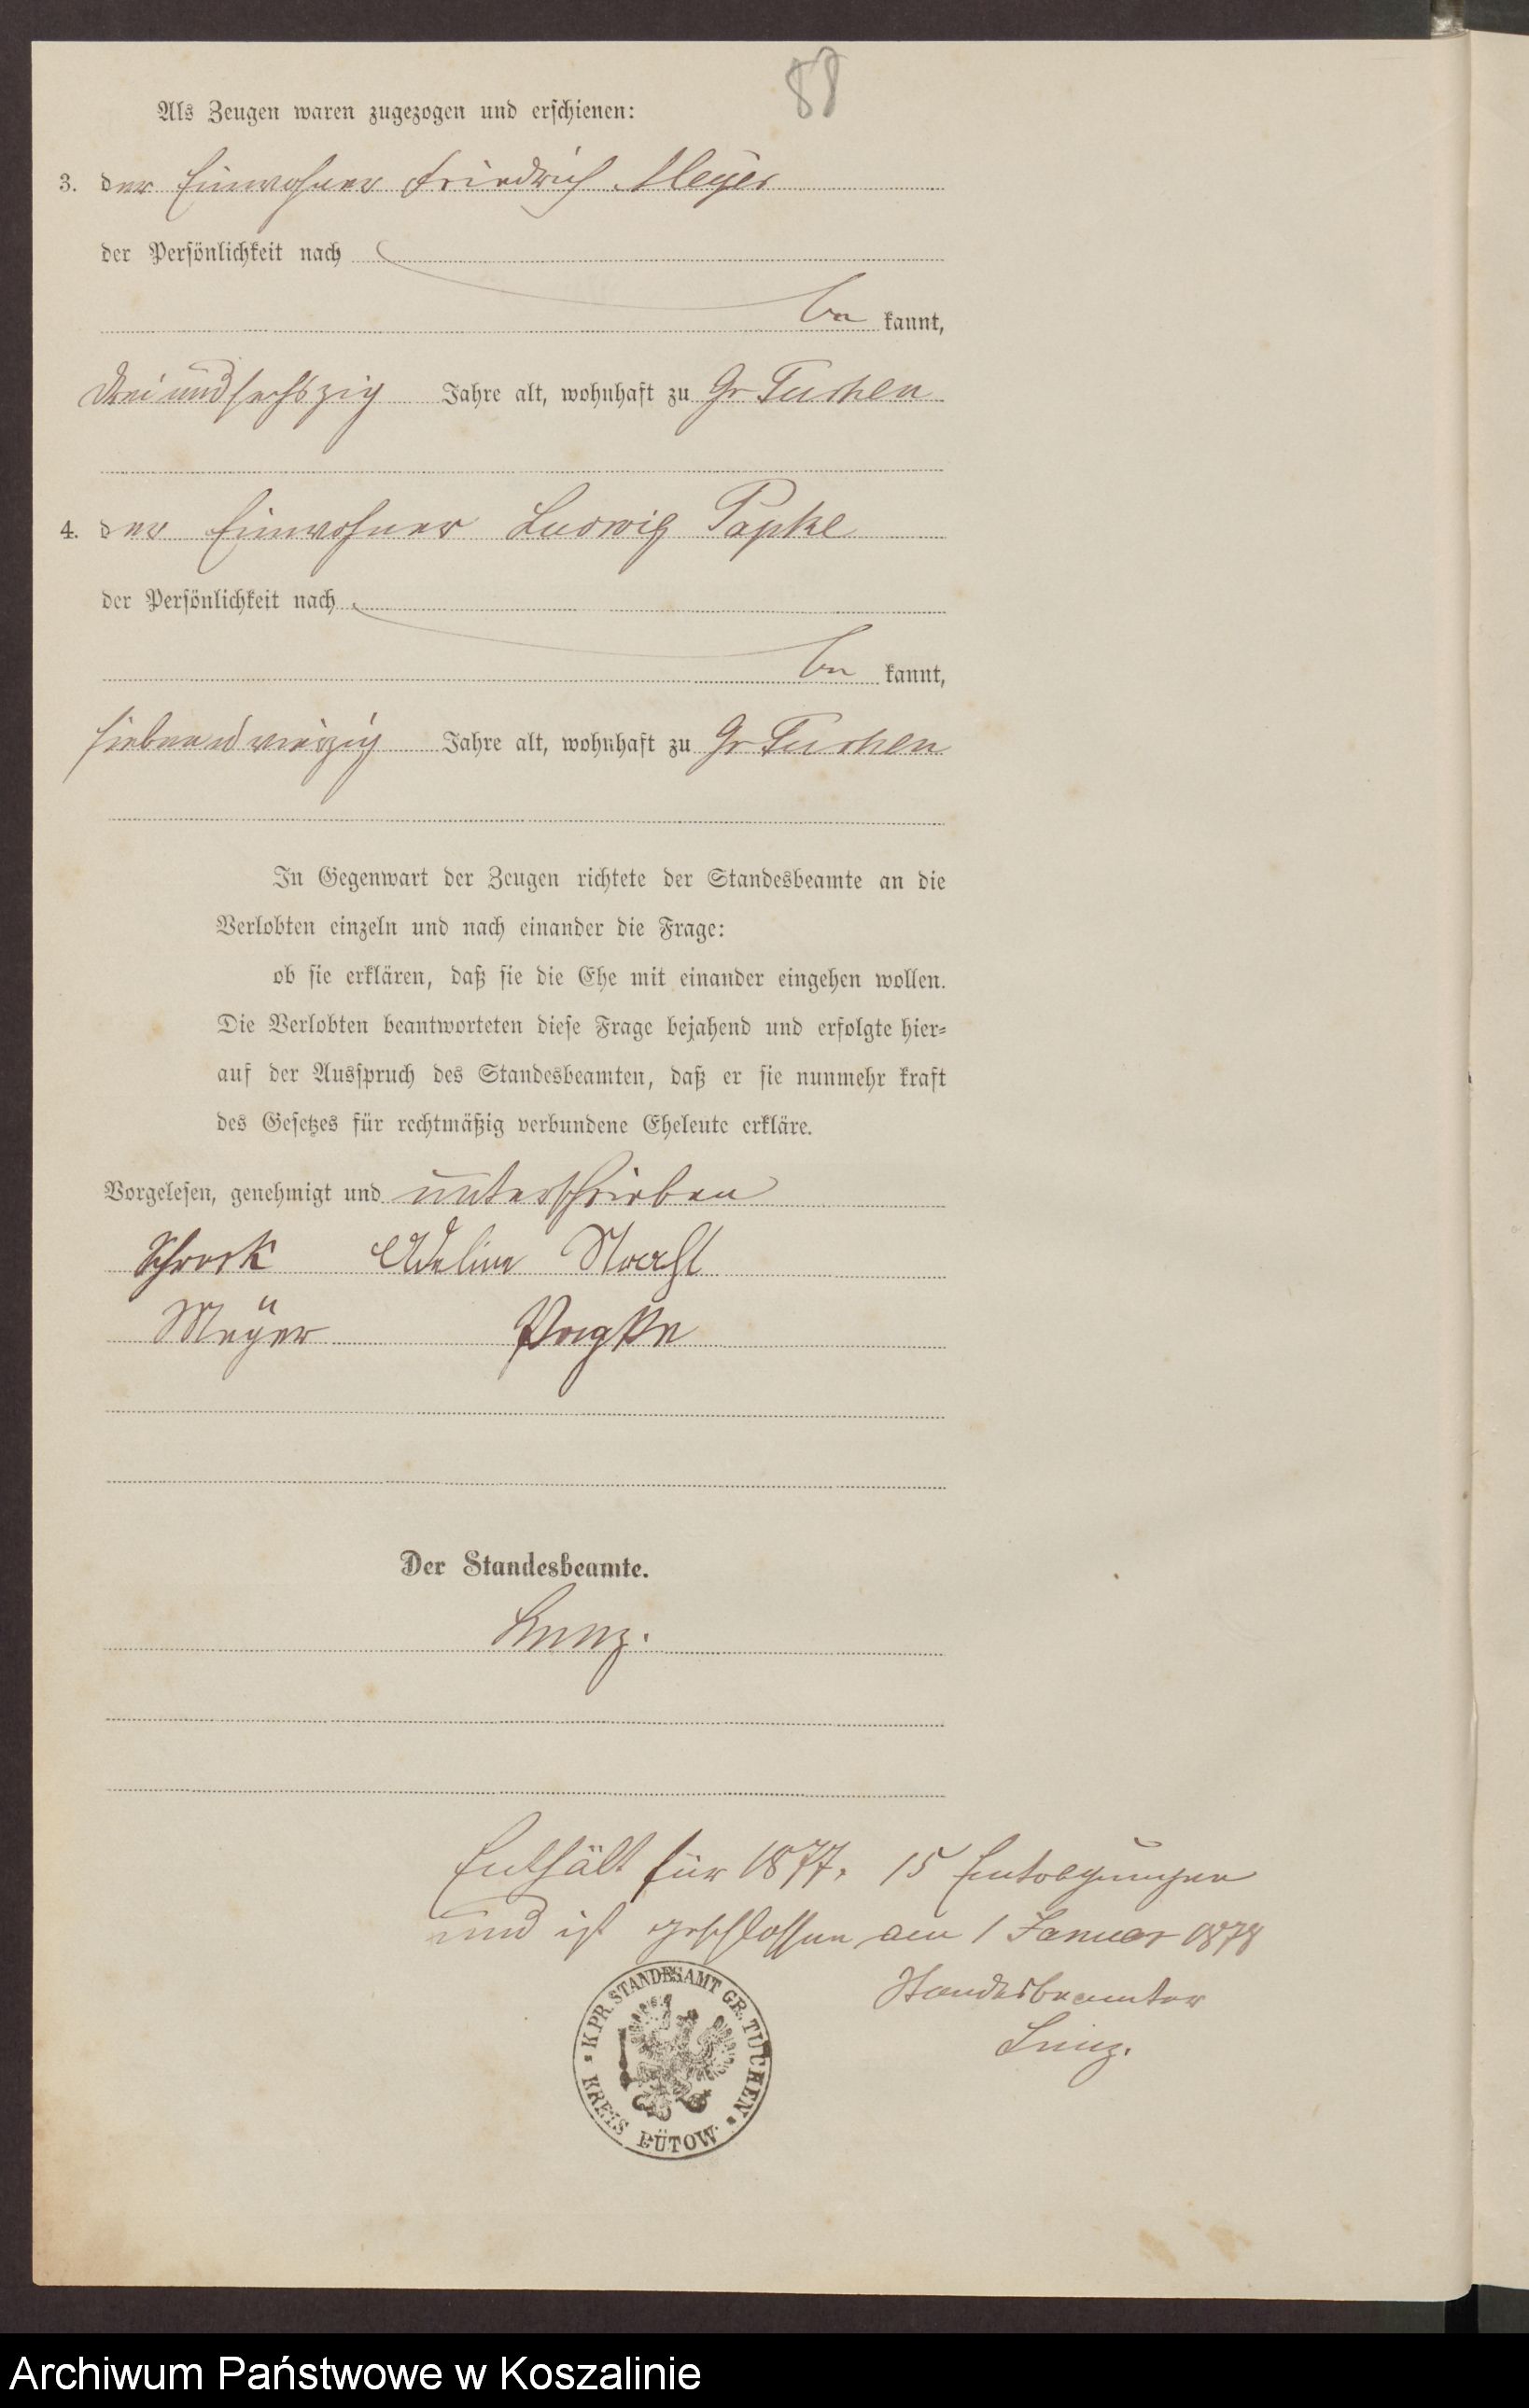 88
Als Zeugen waren zugezogen und erschienen:
3. der Einwohner Friedrich Meyer
der Persönlichkeit nach
be kannt,
dreiundsechszig Jahre alt, wohnhaft zu Gr Tuchen
4. der Einwohner Ludwig Papke
der Persönlichkeit nach
be kannt,
siebenundvierzig Jahre alt, wohnhaft zu Gr Tuchen
In Gegenwart der Zeugen richtete der Standesbeamte an die
Verlobten einzeln und nach einander die Frage:
ob sie erklären, daß sie die Ehe mit einander eingehen wollen.
Die Verlobten beantworteten diese Frage bejahend und erfolgte hier-
auf der Ausspruch des Standesbeamten, daß er sie nunmehr kraft
des Gesetzes für rechtmäßig verbundene Eheleute erkläre.
Vorgelesen, genehmigt und unterschrieben
Adeline
Meÿer Papke
Der Standesbeamte.
Enthält für 1877, 15 Eintragungen
und ist geschlossen am 1 Januar 1878
Standesbeamter
K.PR. STANDESAMT GR. TUCHEN
KREIS BÜTOW
Archiwum Państwowe w Koszalinie